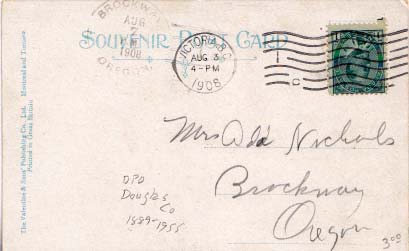 BROCKWAY
AUG
7
AM
1908
OREGON
SOUVENIR POST CARD
VICTORIA, B.C.
AUG 3
4-PM
1908
C
The Valentine & Sons' Publishing Co., Ltd. Montreal and Toronto
Printed in Great Britain
Mrs Add Nichols
Brockway
Oregon
DPO
Douglas
Co
1889-1955
3.00